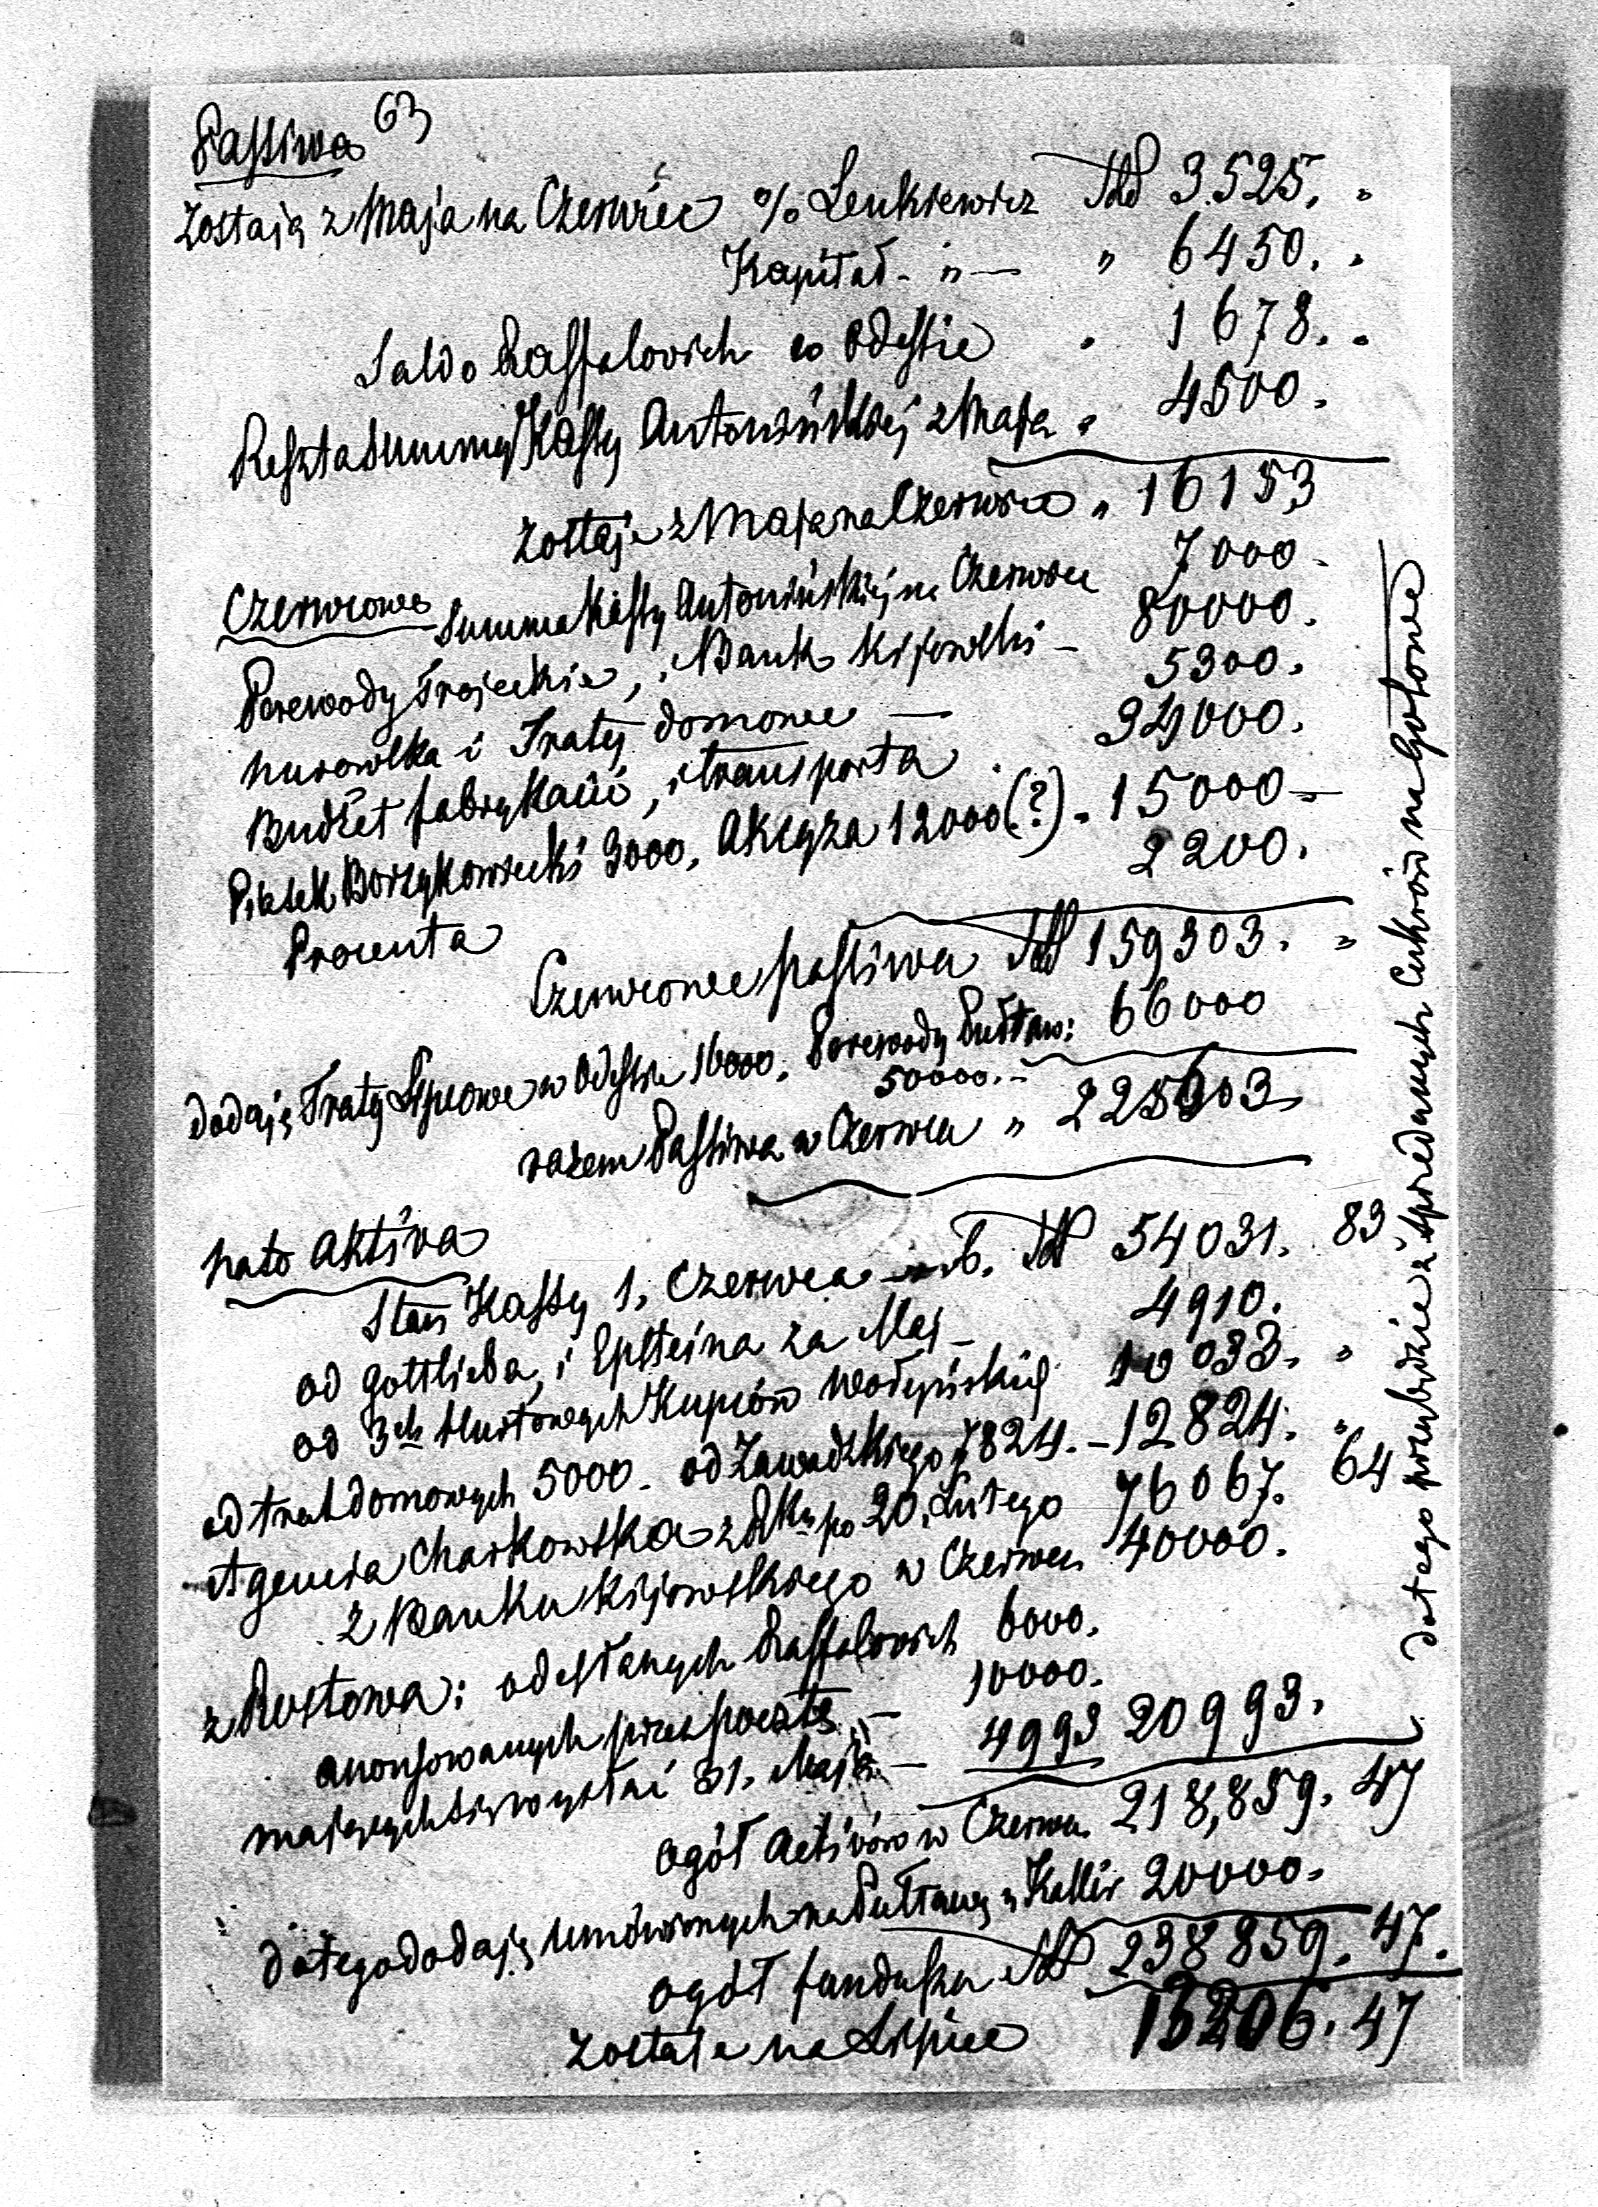 Passiwa 63
Zostają z Maja na Czerwiec % Lenkiewicz Rbl 3.525. „
Kapitał - „ — „ 6450. „
Saldo Raffalovich w Odessie „ 1678. „
Reszta summy Kassy Antonińskiej z Maja „ 4500.
Zostaje z Maja na Czerwiec „ 16153
Czerwcowe Summa Kassy Antonińskiej na Czerwiec 7000 -
Perewody Trojeckie, i Bank Kijowski - 80000.
Murowska i Traty domowe — 5300.
Budżet fabrykacii, i transporta . 34000.
Piasek Borzykowiecki 3000, Akcyza 12000 (?) . 15000 —
Procenta 2200.
Czerwcowe passiwa Rbl 159303. „
dodają Traty Lipcowe w Odessie 16000. Perewody Pułtaw: 66000
50000. -
razem Passiwa w Czerwcu „ 225303
na to Aktiva
Stan Kassy 1. Czerwca b. Rbl 54031. 83
od Gottlieba, i Epsteina za Maj - 4910.
od 3ch hurtowych Kupców Wołyńskich 10033. „
od trat domowych 5000 - od Zawadzkiego 7824. - 12824. „
Agencia Charkowska z po 20. Lutego 76067. 64
z Banku Kijowskiego w Czerwcu 40000.
z Rostowa: odesłanych Raffalovich 6000.
anonsowanych przez pocztę „ — 10000.
mających się wysłać 31. Maja — 4993 20993.
Ogół Activów w Czerwcu 218,859. 47
do tego dodają umówionych na Pułtawę z Kassir 20000.
Ogół funduszu Rbl 238859. 47.
Zostaje na Lipiec 13206. 47
do tego przybędzie z sprzedanych Cukrów na gotowe